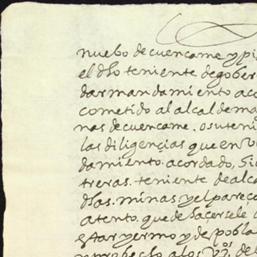 nuebo de cuencame y pi
el dho teniente de gober
dar mandamiento aco
cometido al alcalde ma
nas de cuencame. o su teni
las diligençias que en v
damiento. acordado, Sie
treras. teniente de alca
dhas. minas. y el pareçe
atento. que de haçersele
estar yermo y despobla
probecho a los v.os de